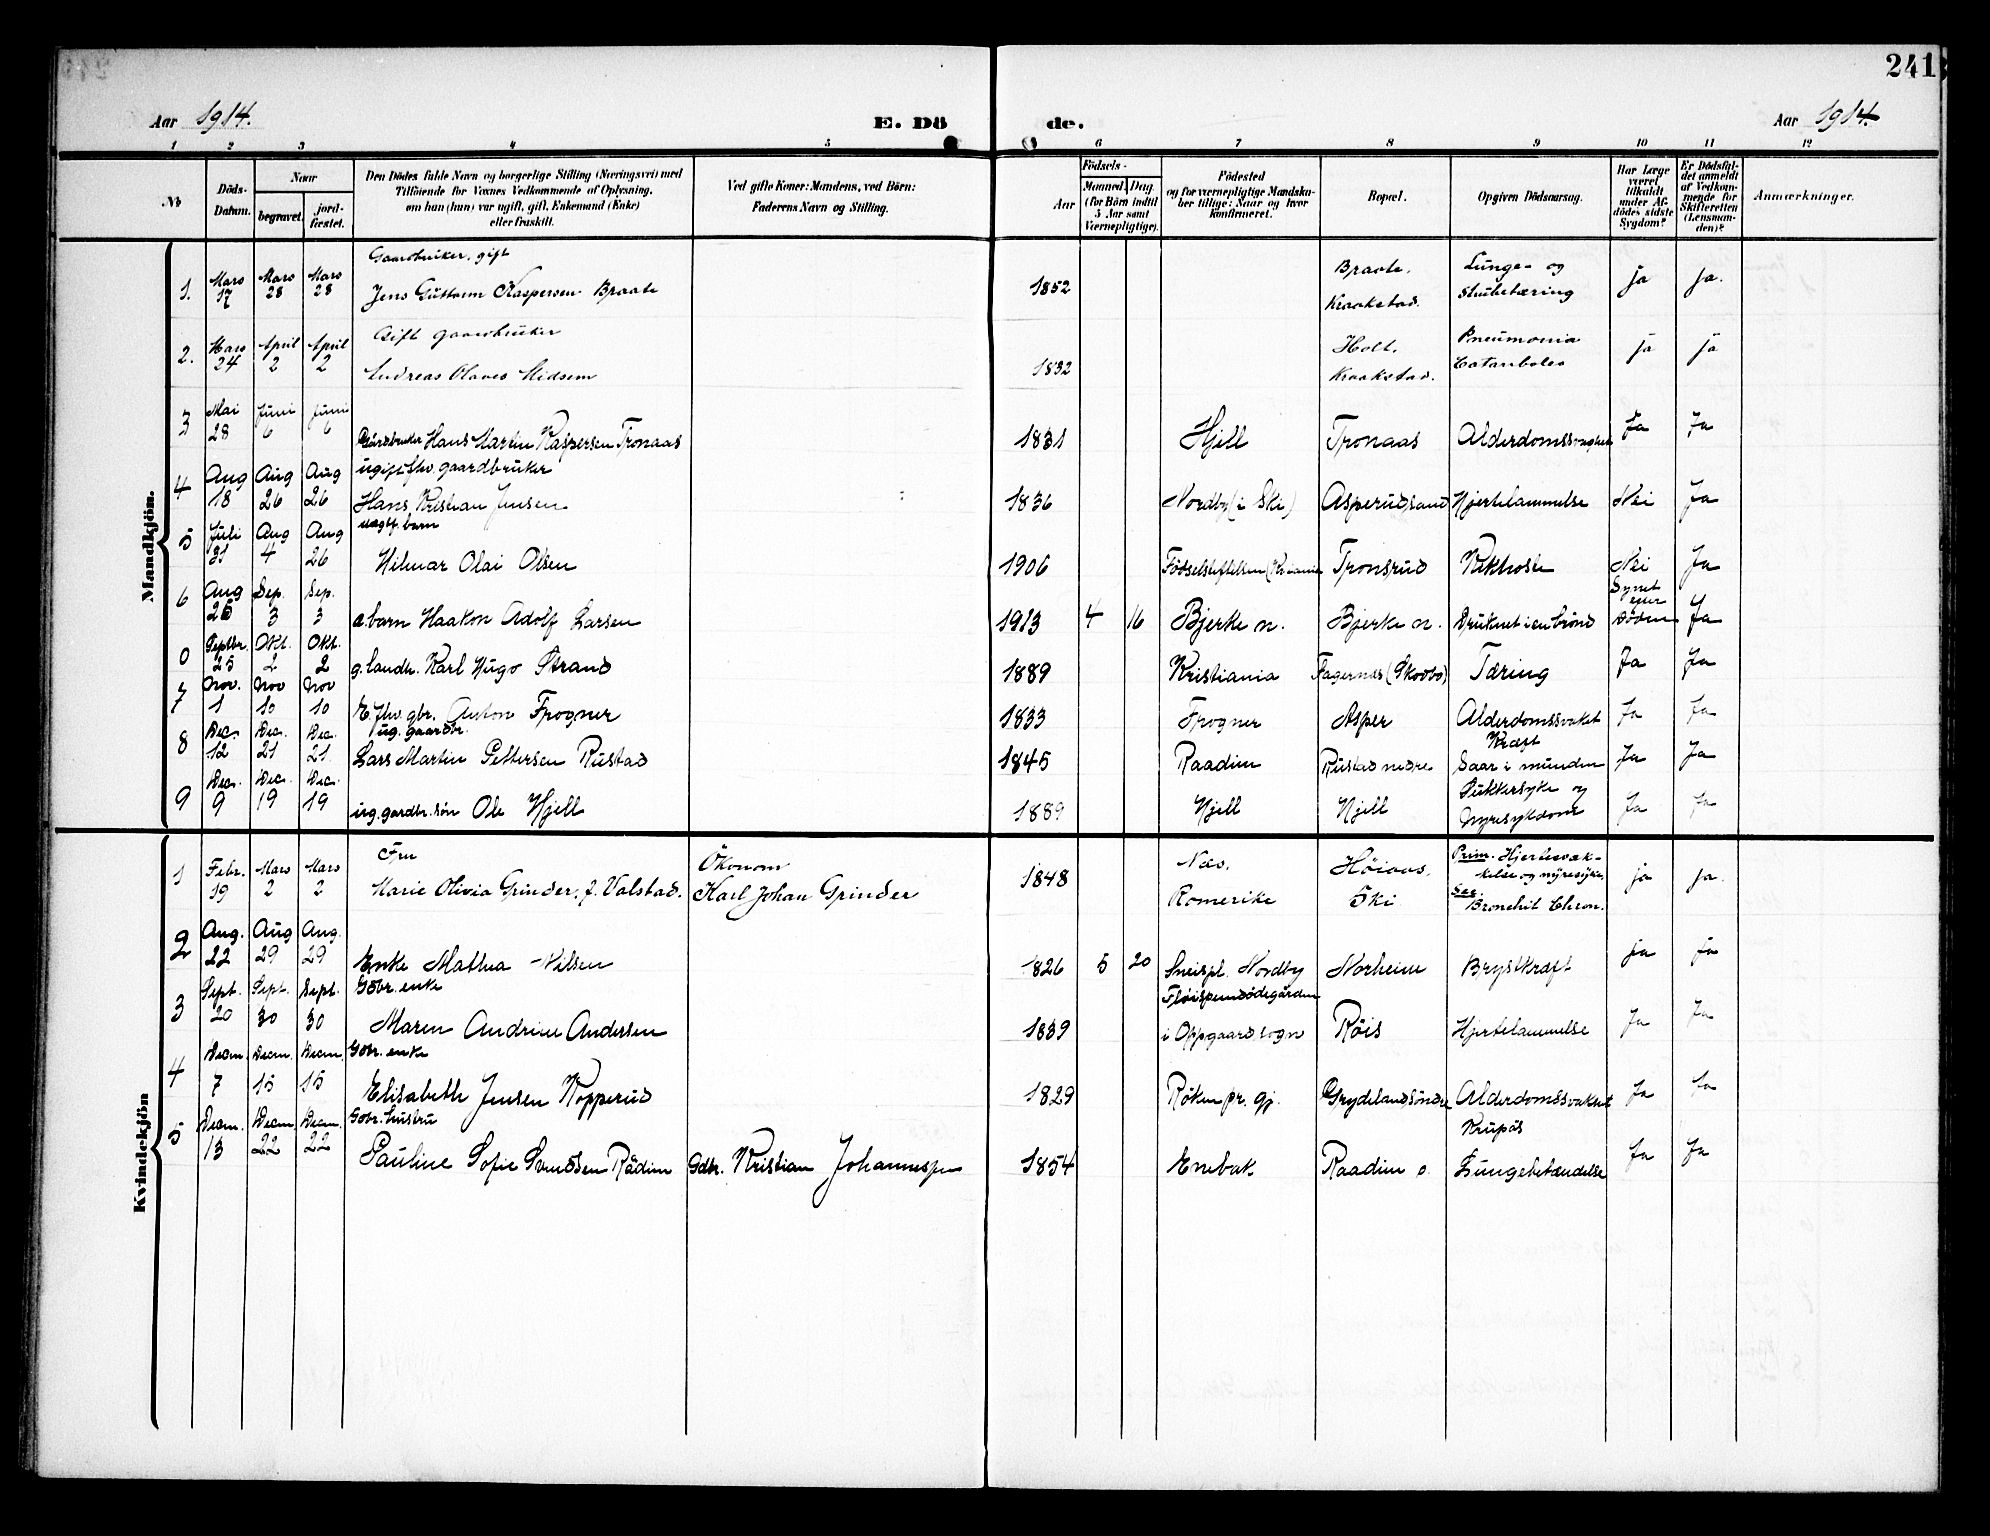 241
Aar 1914. E. Dö de. Aar 1914.
1 2 3 4 5 6 7 8 9 10 11 12
No Döds-Datum. Naar begravet. jordfæstet. Den Dödes fulde Navn og borgerlige Stilling (Næringsvei) med Tilföiende for Voxnes Vedkommende af Oplysning, om han (hun) var ugift, gift, Enkemand (Enke) eller fraskilt. Ved gifte Koner: Mandens, ved Börn: Faderens Navn og Stilling. Födsels- Aar Maaned. Dag. (for Börn indtil 5 Aar samt Værnepligtige). Födested og for værnepligtige Mandskaber tillige: Naar og hvor konfirmeret. Bopæl. Opgiven Dödsaarsag. Har Læge været tilkaldt under Afdödes sidste Sygdom? Er Dödsfaldet anmeldt af Vedkommende for Skifteretten (Lensmanden)? Anmærkninger.
Mandkjön.
Gaardbruker, gift
1. Mars 17 Mars 28 Mars 28 Jens Guttorm Kaspersen Braate 1852 Braate. Kraakstad. Lunge- og Strubetæring ja ja.
Gift gaardbruker
2. Mars 24 April 2 April 2 Andreas Olaves Midsem 1832 Holt. Kraakstad. Pneumonia ja ja
3 Mai 28 Juni 6 Juni 6 Gårdbruker Hans Martin Kaspersen Tronaas 1831 Hjell Tronaas Alderdomssvaghet Ja Ja
ugift fhv. gaardbruker
4 Aug 18 Aug 26 Aug 26 Hans Kristian Jensen 1836 Nordby (i Ski) Asperudsand Hjertelammelse Nei Ja
uegtf. barn
5 Juli 31 Aug 4 Aug 26 Hilmar Olai Olsen 1906 Födselstiftelsen (Kr.ania Tronsrud Kikhoste Nei Ja
6 Aug 26 Sep. 3 Sep. 3 e. barn Haakon Adolf Larsen 1913 4 16 Bjerke n. Bjerke n. Druknet i en brönd Synet efter döden Ja
0 Septbr. 25 Okt. 2 Okt. 2 g. landh. Karl Hugo Strand 1889 Kristiania Fagernæs (Skodbo) Tæring Ja Ja
7 Nov. 1 Nov 10 Nov 10 E. fhv. gbr. Anton Frogner 1833 Frogner Asper Alderdomssvaket Ja Ja
ug. gaardbr.
8 Dec. 12 Dec. 21 Dec. 21 Lars Martin Pettersen Rustad 1845 Raadim Rustad nedre Kræft Saar i munden Ja Ja
9 Dec. 9 Dec. 19 Dec. 19 ug. gardbr. sön Ole Hjell 1889 Hjell Hjell Sukkersyke og nyresykdom Ja Ja
Kvindekjön
Fru Ökonom
1 Febr. 19 Mars 2 Mars 2 Marie Olivia Grinder, f. Valstad. Karl Johan Grinder 1848 Næs. Romerike Höiaas. Ski Prim. Hjertesvækkelse og nyresyke. Sec. Bronchit Chron. ja ja.
2 Aug. 22 Aug 29 Aug. 29 Enke Mathea Nilsen 1826 5 20 Sneispl. Nordby Norheim Brystkræft ja ja
Gdbr. enke
3 Sept. 20 Sept. 30 Sept. 30 Maren Andrine Andersen 1839 Flöispenødegården i Oppgaard sogn Röis Hjertelammelse Ja Ja
Gdbr. enke
4 Decm. 7 Decm. 15 Decm. 15 Elisabeth Jensen Kopperud 1829 Röken pr. gj. Grydelandsöndre Alderdomssvakhet Ja Ja
Gdbr. hustru
5 Decm. 13 Decm. 22 Decm. 22 Pauline Sofie Svendsen Rådim Gdbr. Kristian Johannessen 1854 Enebak. Raadim s. Krupös Lungebetændelse Ja Ja